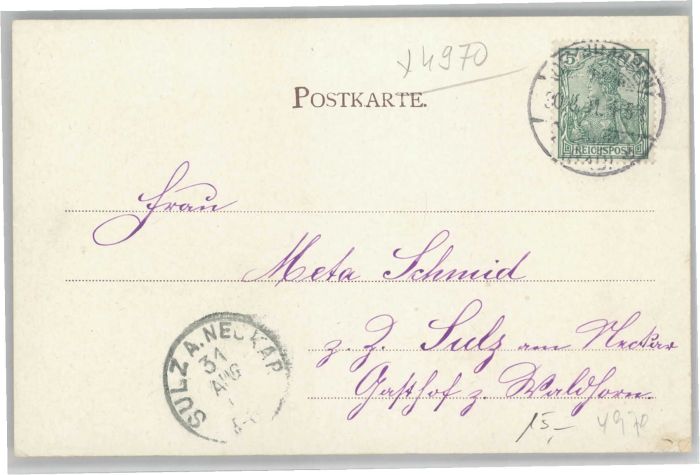 x4970
POSTKARTE.
5
REICHSPOST
Frau
Meta Schmid
z. Z. Sulz am Neckar
Gasthof z. Waldhorn.
SULZ A. NECKAR
31
AUG
15,- x4970